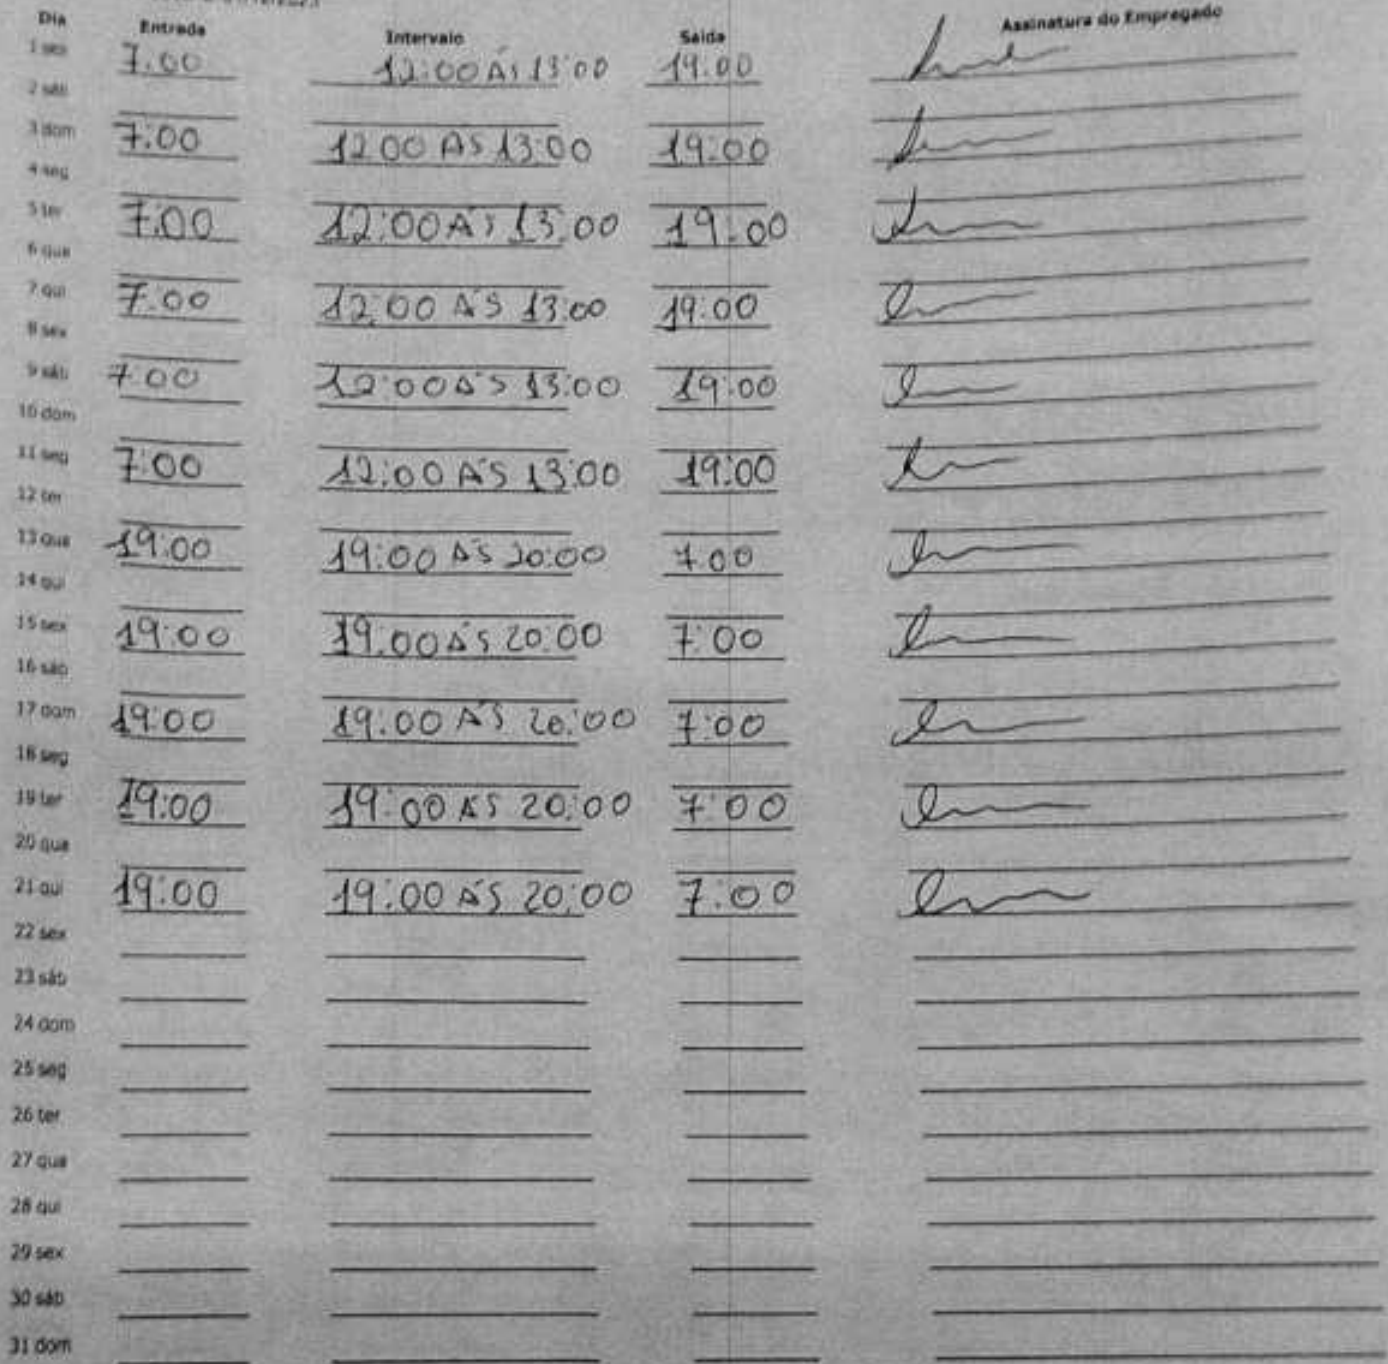 Dia Entrada Intervalo Saída Assinatura do Empregado
1 sex 7.00 12:00 ÁS 13:00 19:00
2 sáb
3 dom 7:00 12:00 ÁS 13:00 19:00
4 seg
5 ter 7:00 12:00 ÁS 13:00 19:00
6 qua
7 qui 7:00 12:00 ÁS 13:00 19:00
8 sex
9 sáb 7:00 12:00 ÁS 13:00 19:00
10 dom
11 seg 7:00 12:00 ÁS 13:00 19:00
12 ter
13 qua 19:00 19:00 ÁS 20:00 7:00
14 qui
15 sex 19:00 19:00 ÁS 20:00 7:00
16 sáb
17 dom 19:00 19:00 ÁS 20:00 7:00
18 seg
19 ter 19:00 19:00 ÁS 20:00 7:00
20 qua
21 qui 19:00 19:00 ÁS 20:00 7:00
22 sex
23 sáb
24 dom
25 seg
26 ter
27 qua
28 qui
29 sex
30 sáb
31 dom